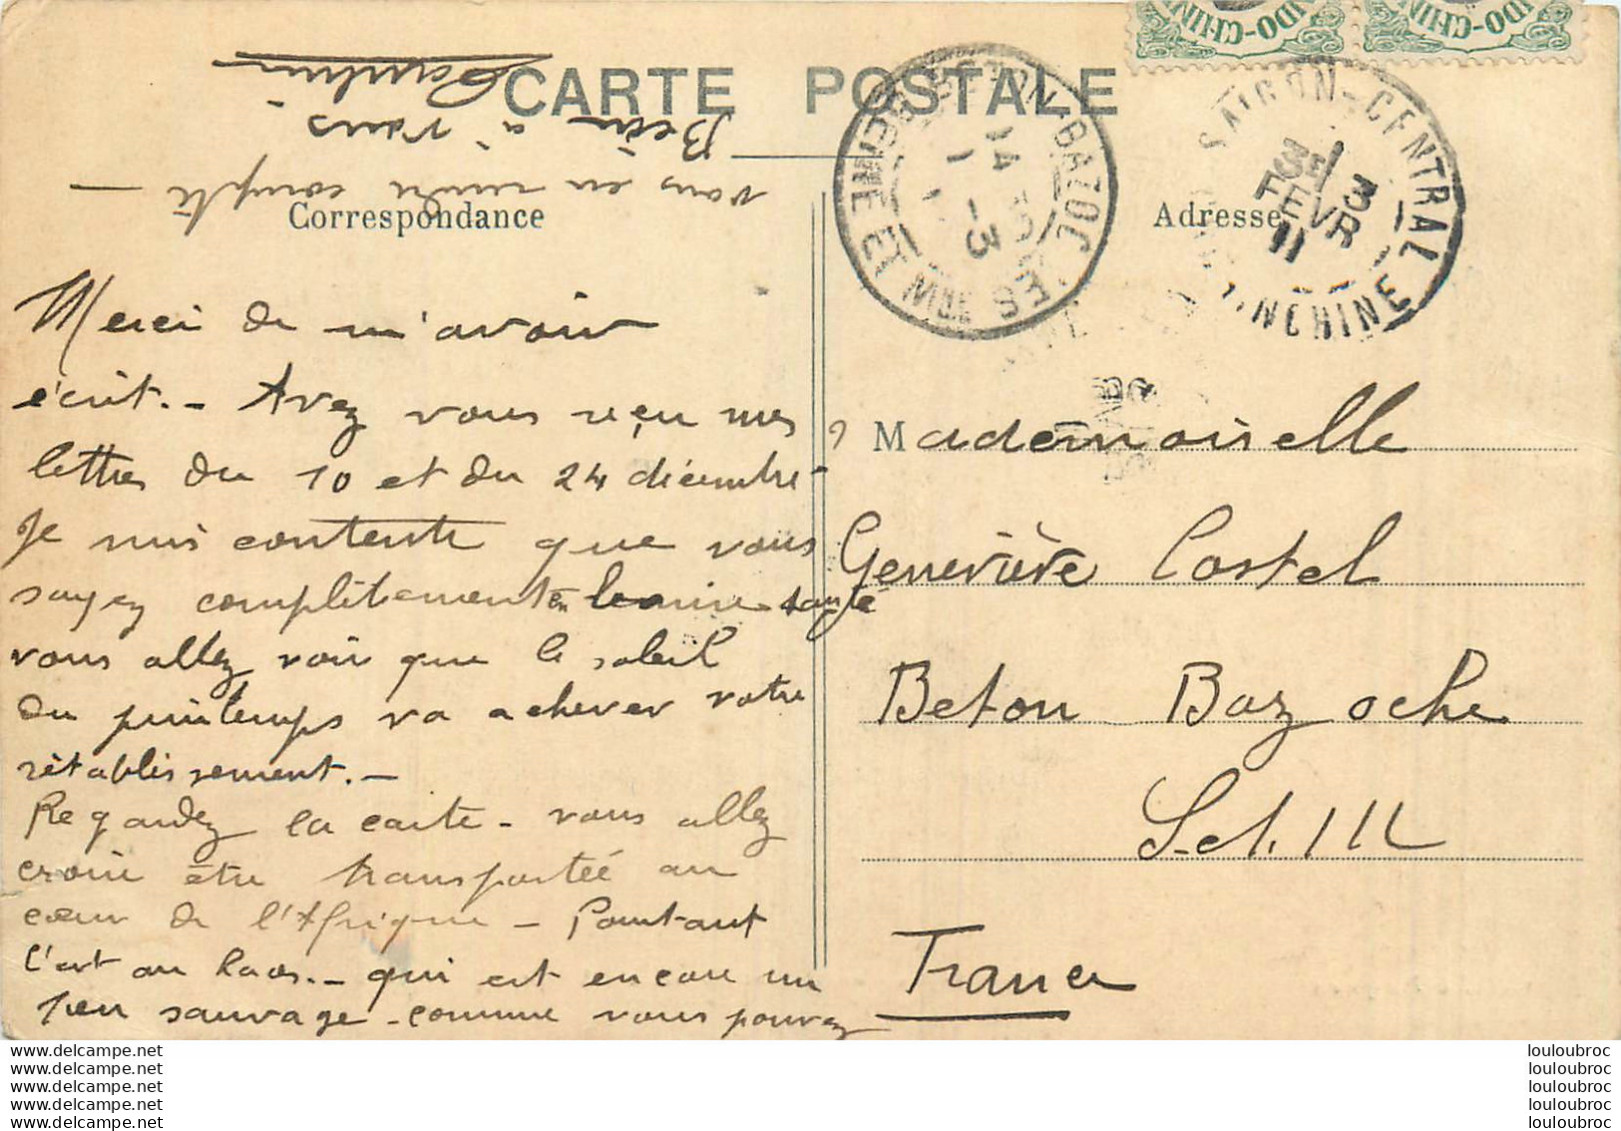 CARTE POSTALE
Correspondance
Adresse
INDO-CHINE
INDO-CHINE
SAIGON-CENTRAL
3E
3
FEVR
11
BETON-BAZOCHES
SEINE ET MNE
14
1-3
Merci de m'avoir
écrit.- Avez vous reçu mes
lettres du 10 et du 24 décembre-
Je suis contente que vous
soyez complètement en bonne santé
vous allez voir que le soleil
du printemps va achever votre
rétablissement.-
Regardez la carte - vous allez
croire être transportée au
cœur de l'Afrique - Pourtant
c'est au Laos.- qui est encore un
peu sauvage - comme vous pouvez
vous en rendre compte -
Bien à vous
Mademoiselle
Geneviève Costel
Beton Bazoche
S. et. M
France
www.delcampe.net
www.delcampe.net
www.delcampe.net
www.delcampe.net
www.delcampe.net
louloubroc
louloubroc
louloubroc
louloubroc
louloubroc